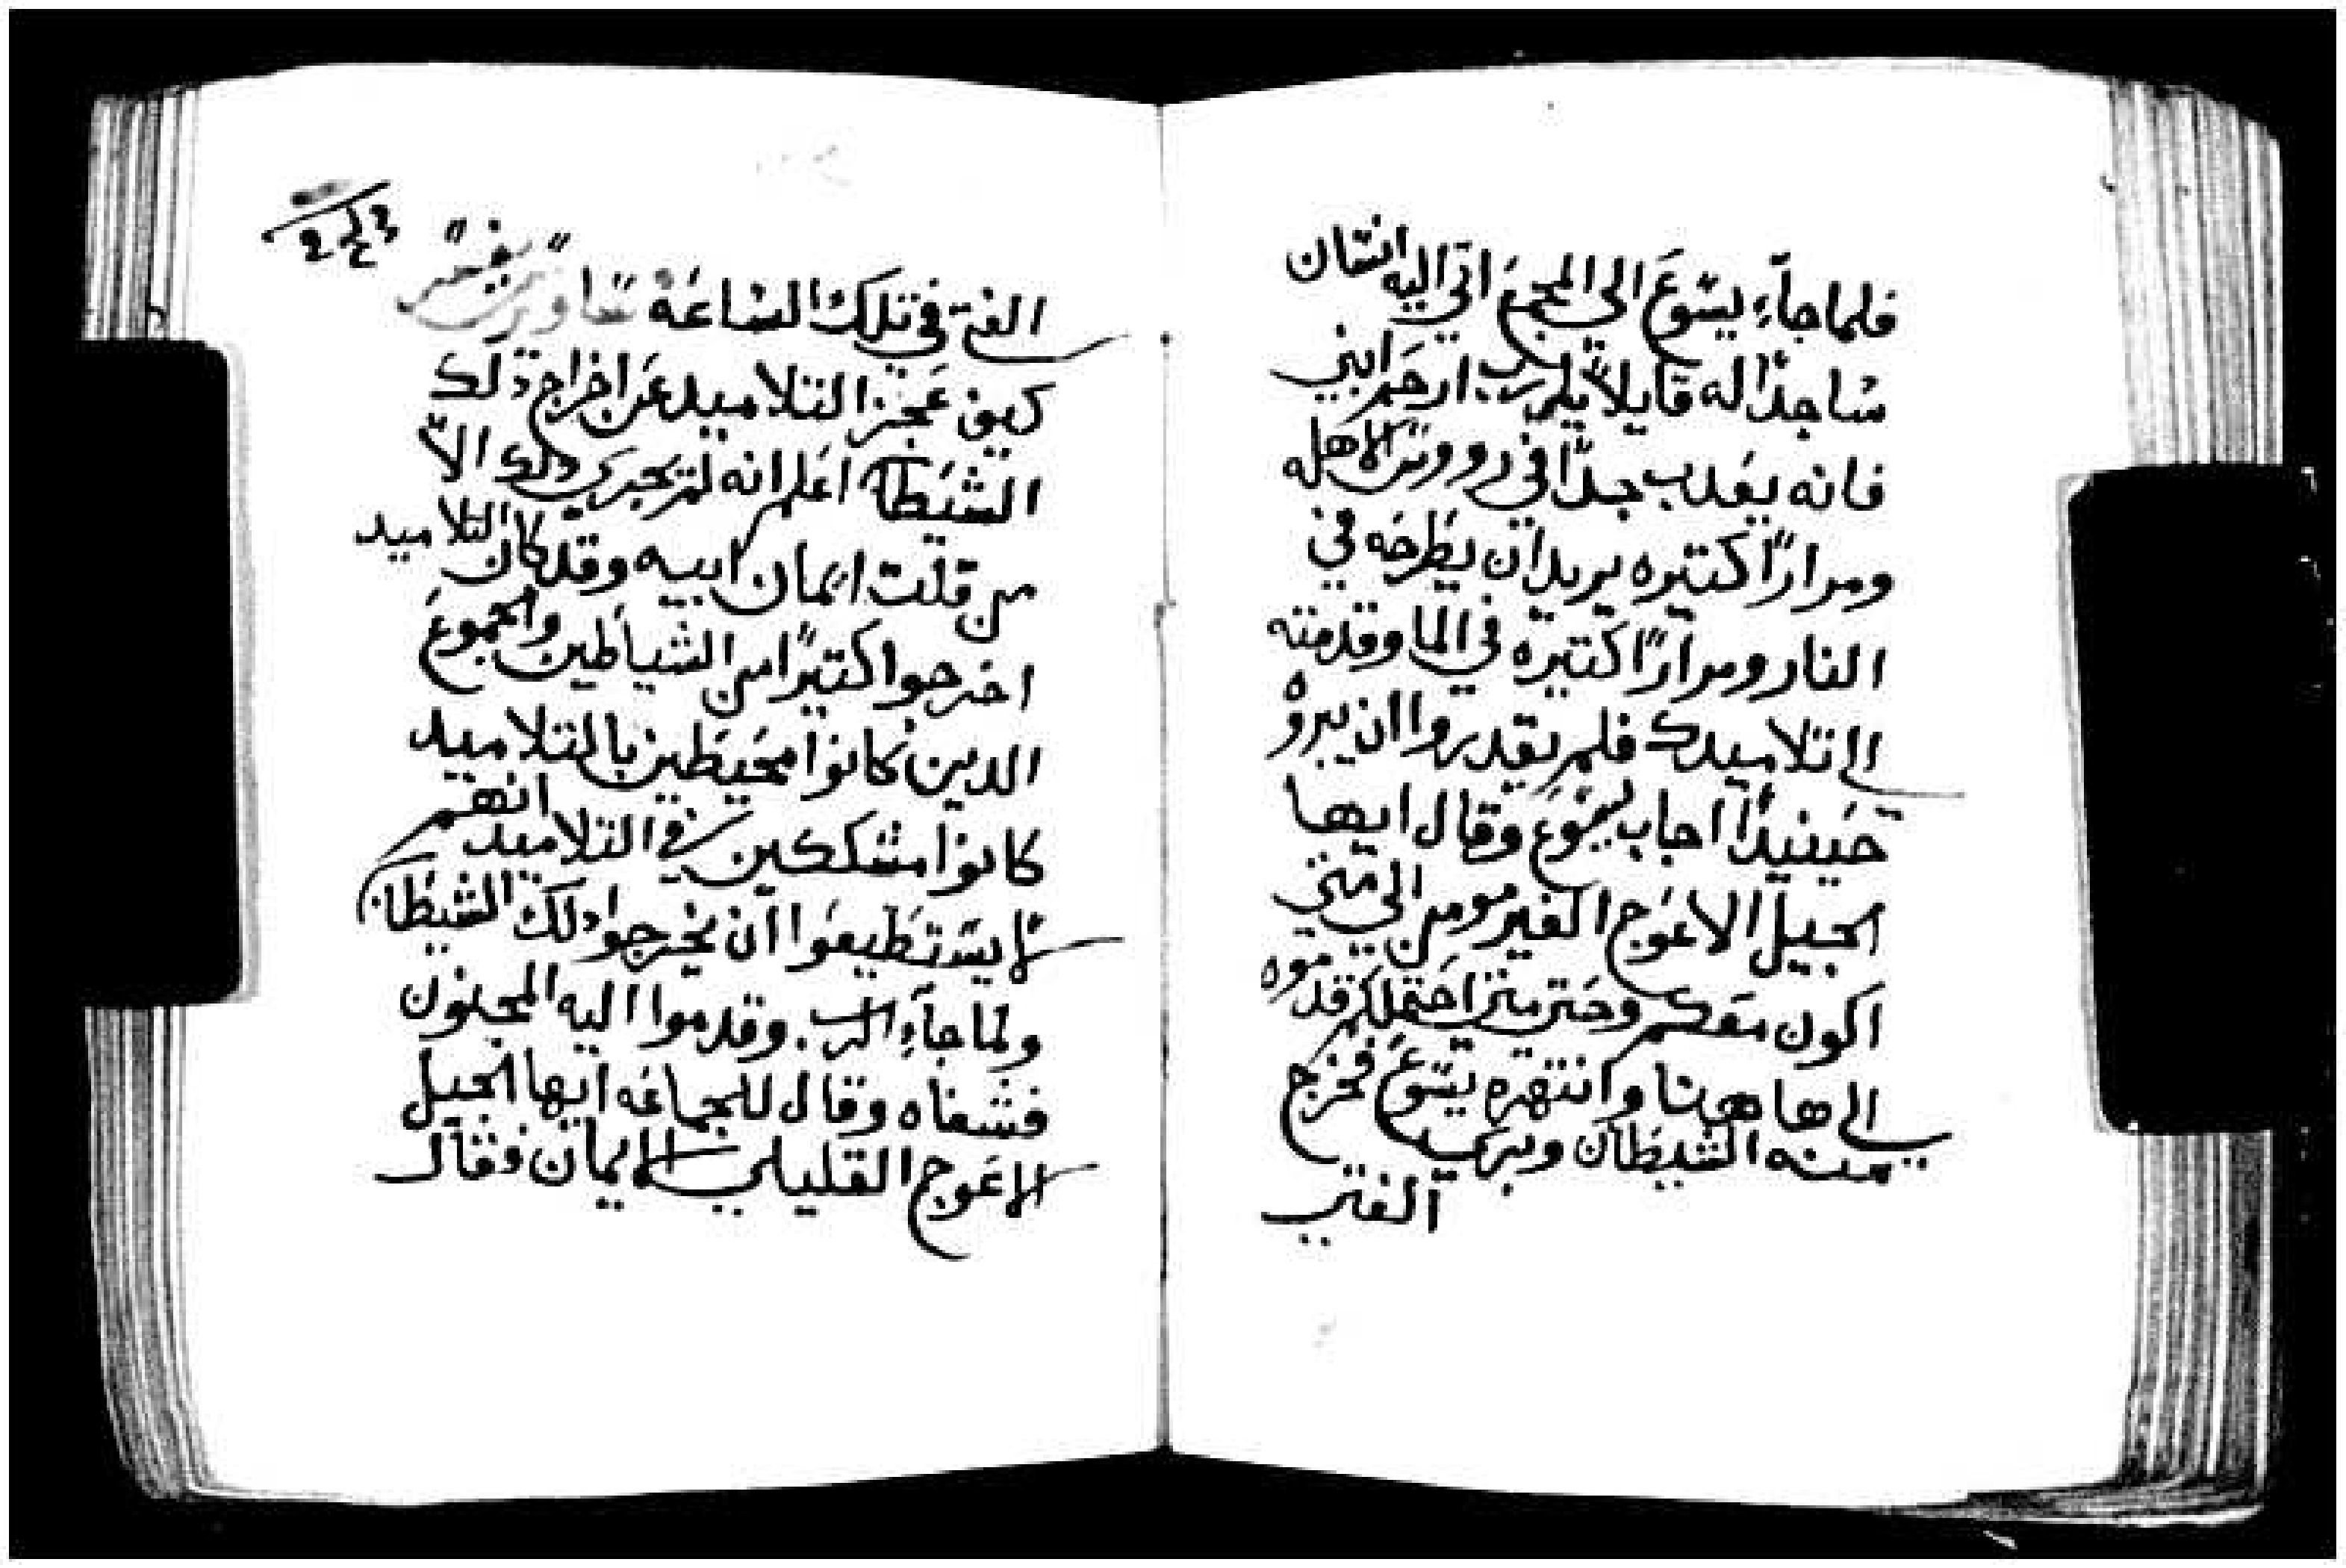 فلما جآءِ يسوع الي المجمع اتي اليه انتسان
ساجدًا له قايلاً يارب ارحم ابني
فانه يعدب جدًا في رووس الاهله
ومرارًا كتيره يريد ان يطرحه في
النار ومرارًا كتيره في الما وقدمته
الي تلاميدك فلم يقدروا ان يبروه
حينيدًا اجاب يسوع وقال ايها
الجيل الاعوج الغير مومن الي متي
اكون معكم وحتي متي احتملكم قدموه
الي هاهونا وانتهره يسوع فخرج
منه الشيطان وبري
الفتي
الفتي في تلك الساعه
تفسير
كيف عجز التلاميد عن اخراج دلك
الشيطان اعلم انه لم يجري دلك الاّ
من قلت ايمان ابيه وقد كان التلاميد
اخرجوا كتيرًا من الشياطين والجموع
الدين كانوا محيطين بالتلاميد
كانوا متشككين في التلاميد انهم
لا يستطيعوا ان يخرجوا دلك الشيطان
ولما جآءِ الرب وقدموا اليه المجنون
فشفاه وقال للجماعه ايها الجيل
الاعوج القليلي الايمان فقال